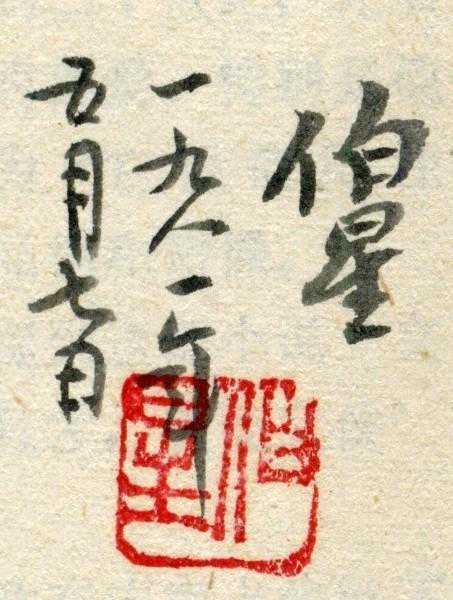 伯星
一九八一年
五月七日
伯星